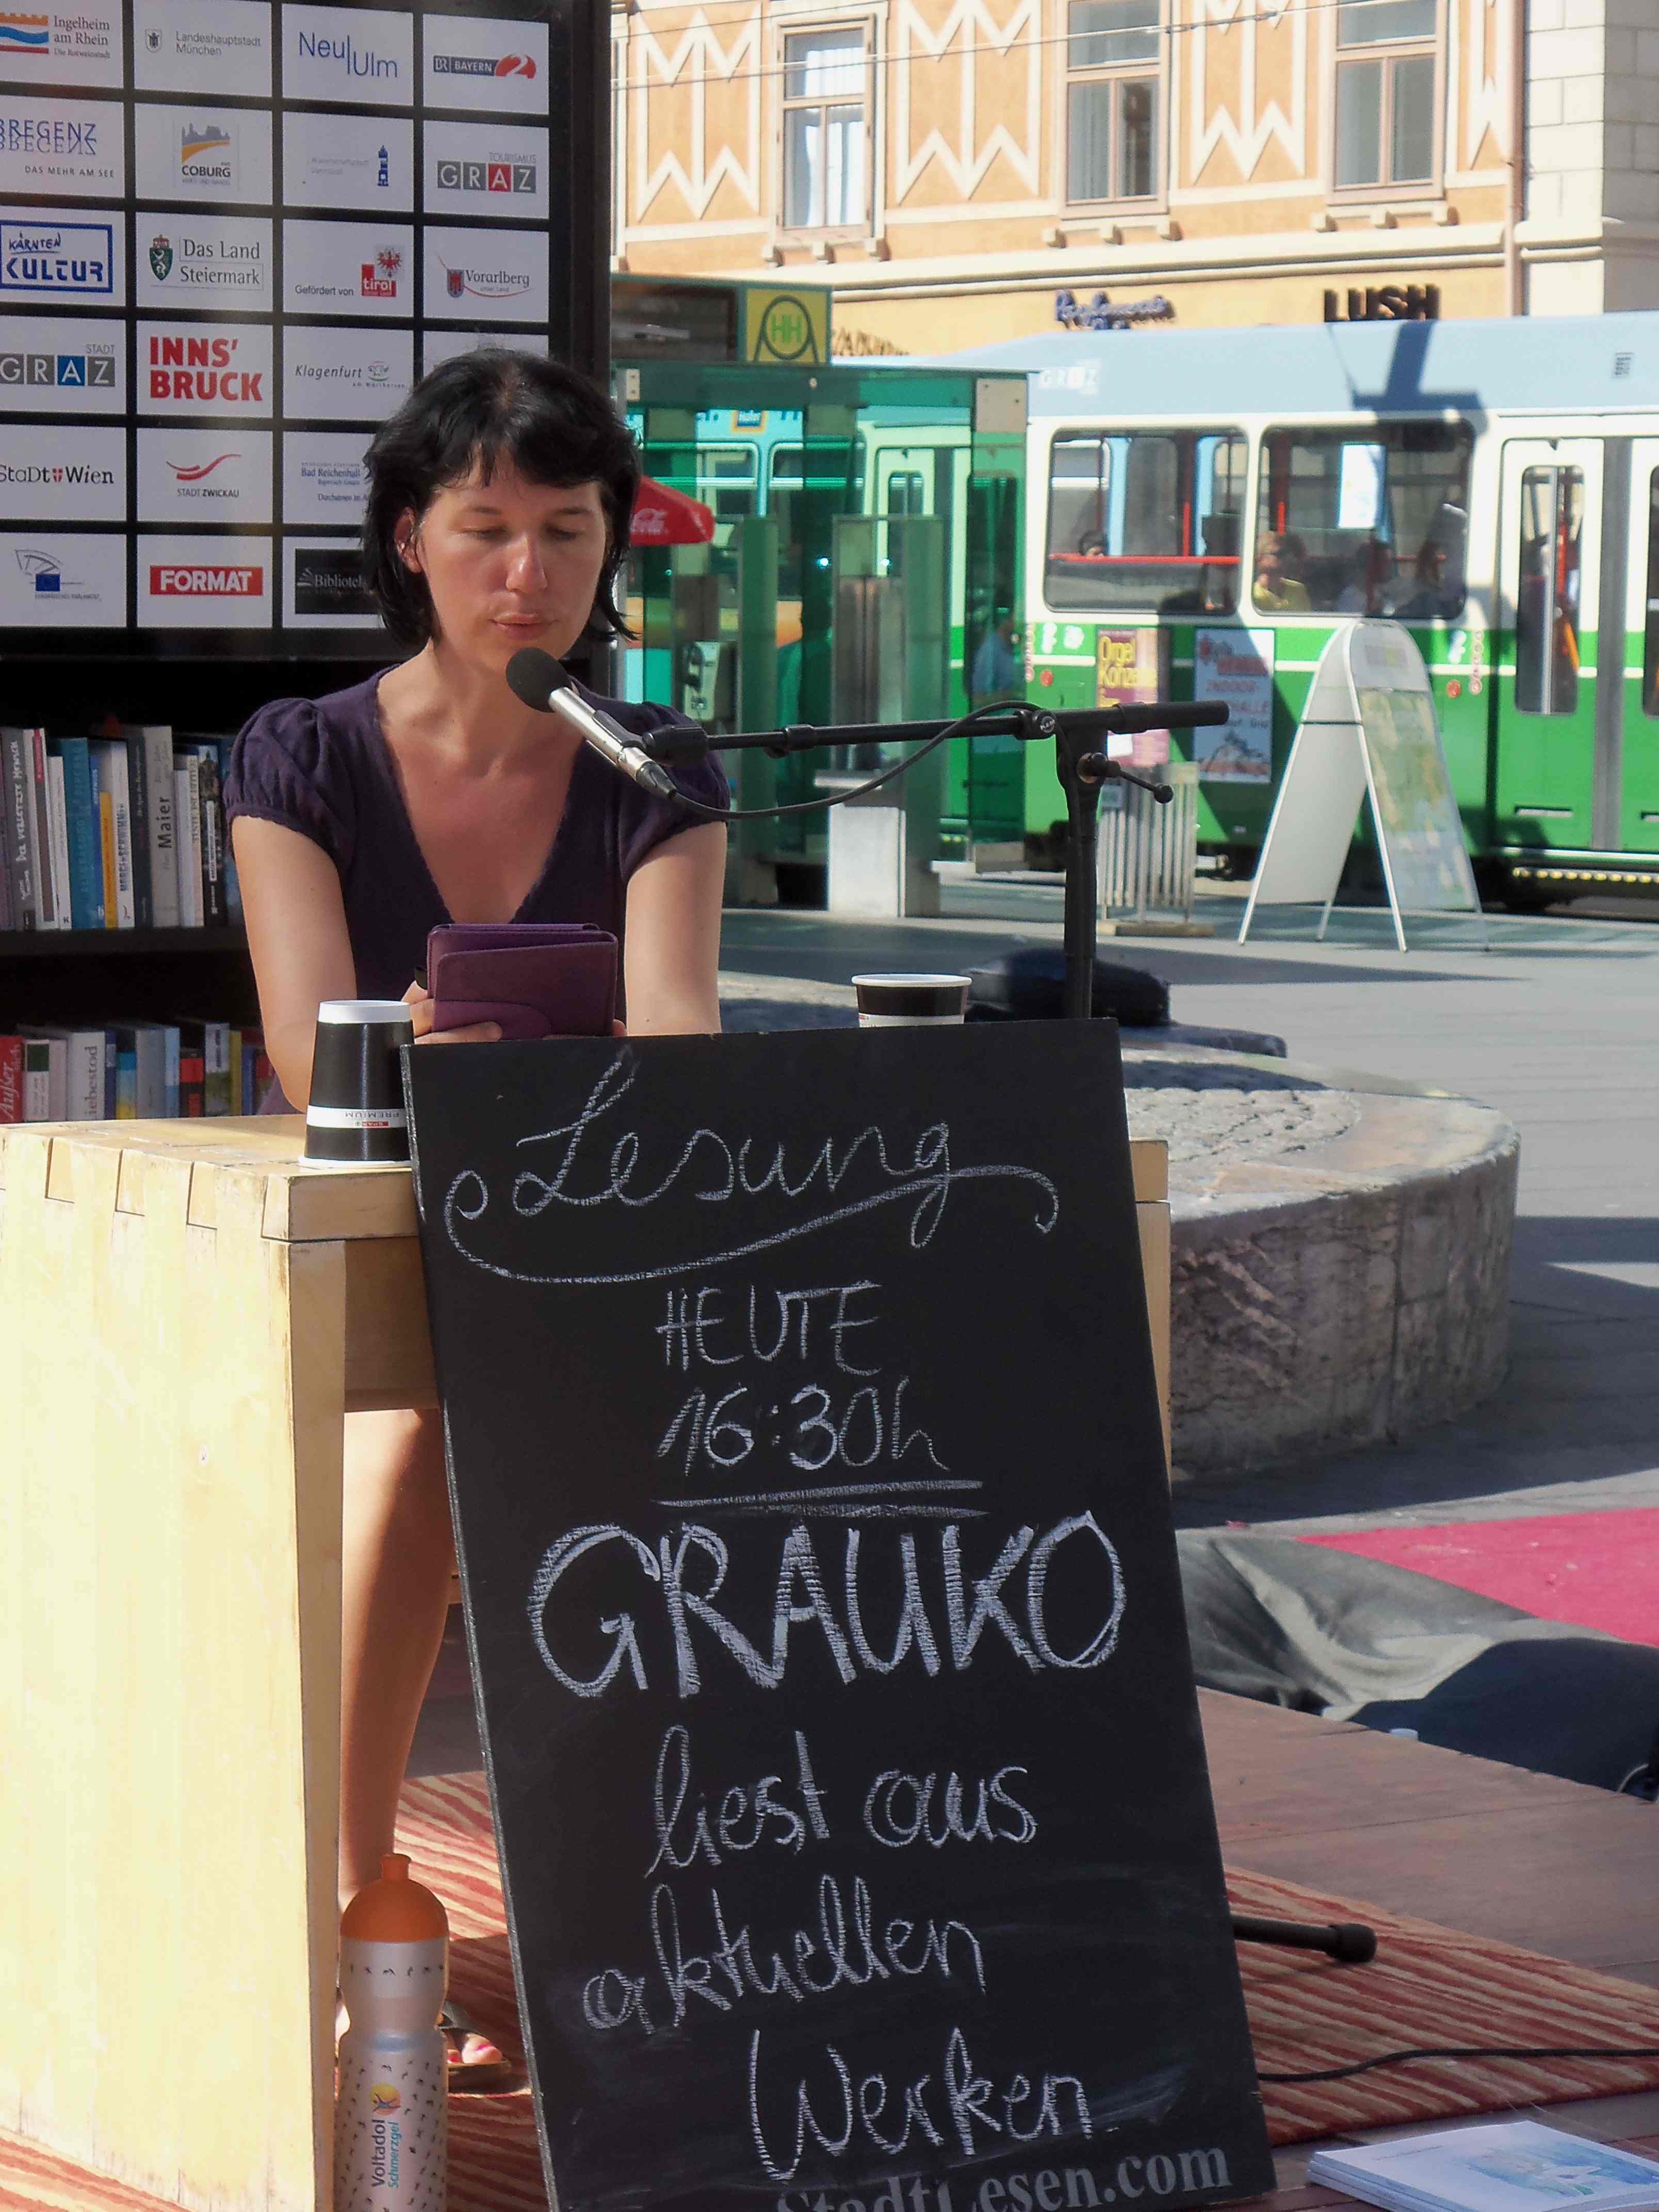 Ingelheim
am Rhein
Die Rotweinstadt
Landeshauptstadt
München
Neu Ulm
BR BAYERN 2
BREGENZ
DAS MEHR AM SEE
COBURG
TOURISMUS
GRAZ
KÄRNTEN
KULTUR
Das Land
Steiermark
Gefördert von
tirol
Vorarlberg
STADT
GRAZ
INNS'
BRUCK
Klagenfurt
StaDt Wien
STADT ZWICKAU
Bad Reichenhall
FORMAT
HH
LUSH
GRAZ
Orgel
Maier
Außer
iebestod
PREMIUM
SPAR
Lesung
HEUTE
16:30h
GRAUKO
liest aus
aktuellen
Werken
StadtLesen.com
Voltadol
Schmerzgel